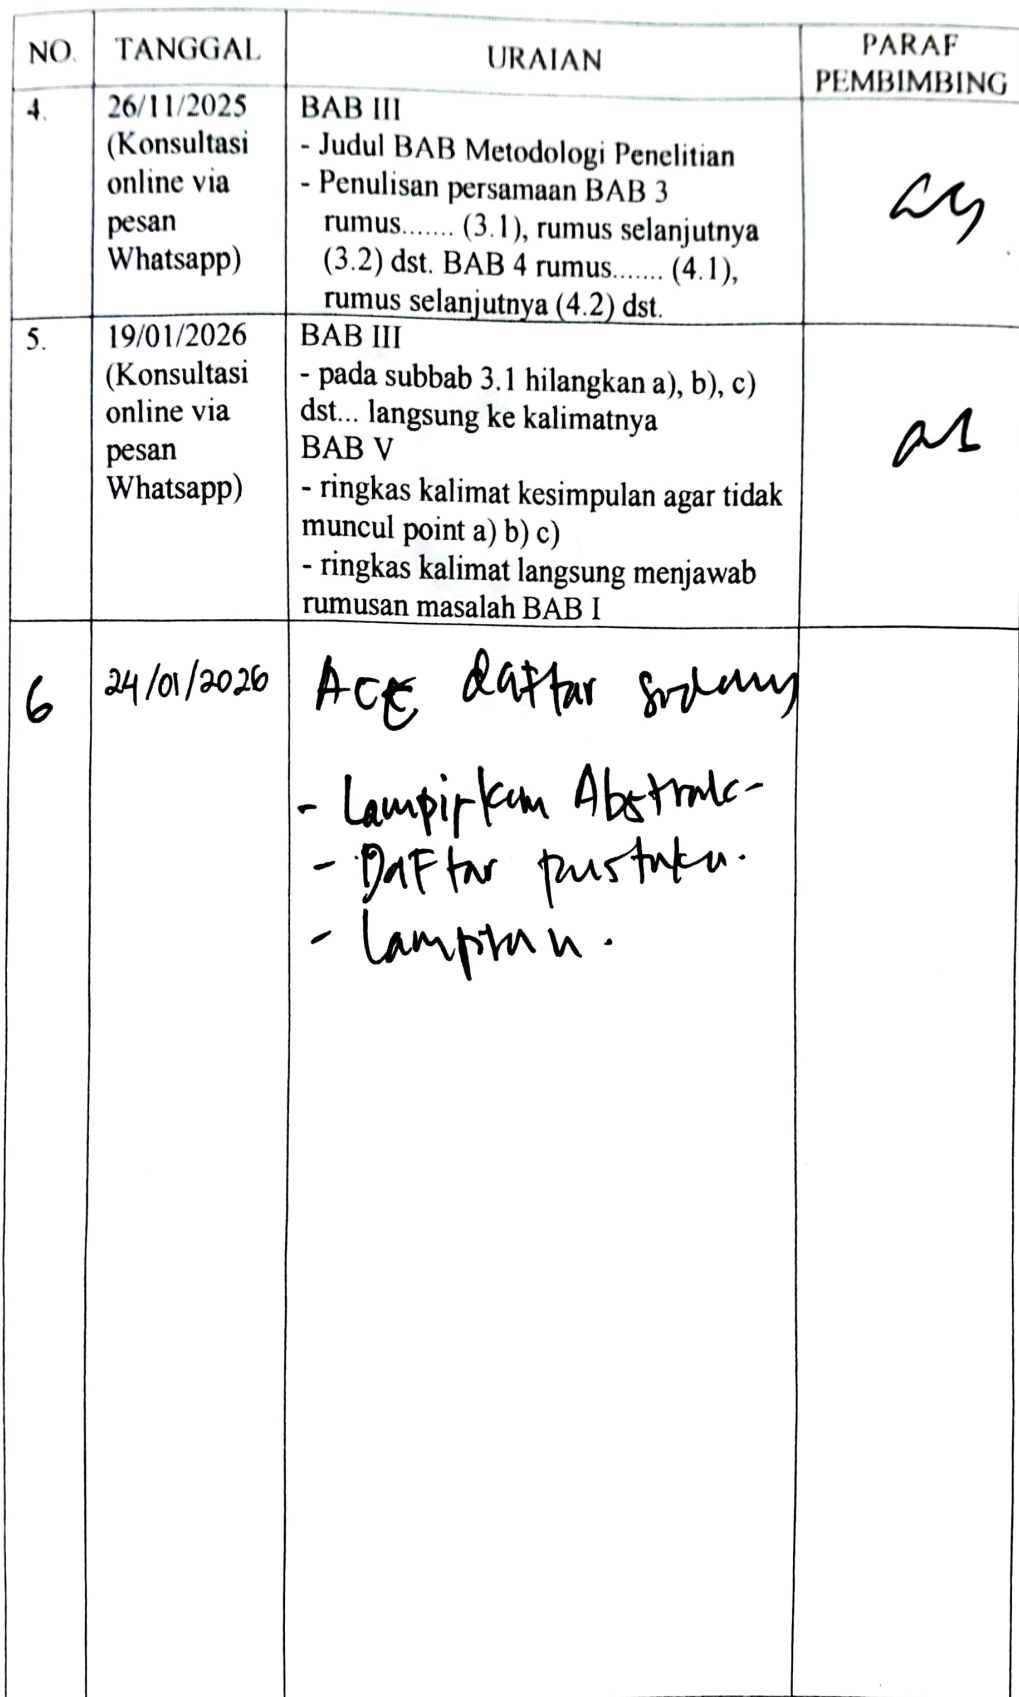 NO. TANGGAL URAIAN PARAF PEMBIMBING
4.
26/11/2025
(Konsultasi
online via
pesan
Whatsapp)
BAB III
- Judul BAB Metodologi Penelitian
- Penulisan persamaan BAB 3
rumus....... (3.1), rumus selanjutnya
(3.2) dst. BAB 4 rumus....... (4.1),
rumus selanjutnya (4.2) dst.
5.
19/01/2026
(Konsultasi
online via
pesan
Whatsapp)
BAB III
- pada subbab 3.1 hilangkan a), b), c)
dst... langsung ke kalimatnya
BAB V
- ringkas kalimat kesimpulan agar tidak
muncul point a) b) c)
- ringkas kalimat langsung menjawab
rumusan masalah BAB I
6
24/01/2026
daftar sidang
- Lampirkan Abstrak-
- Daftar pustaka.
- Lampiran.